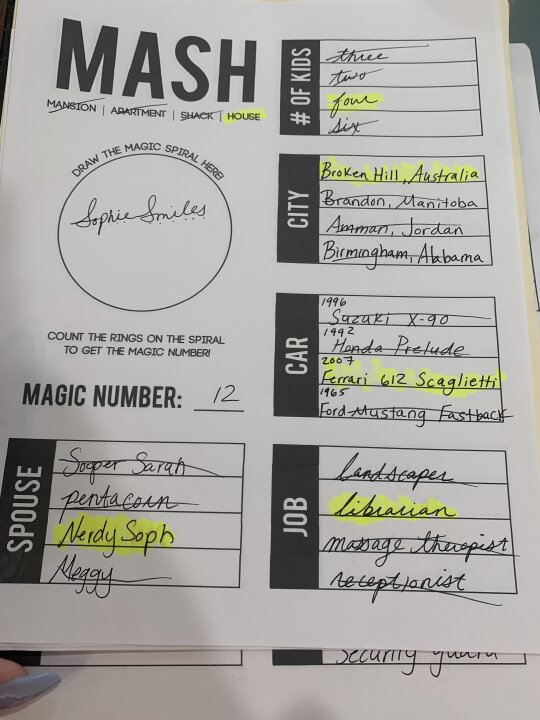 MASH
MANSION | APARTMENT | SHACK | HOUSE
DRAW THE MAGIC SPIRAL HERE!
Sophie Smiles
COUNT THE RINGS ON THE SPIRAL
TO GET THE MAGIC NUMBER!
MAGIC NUMBER: 12
# OF KIDS
three
two
four
six
CITY
Broken Hill, Australia
Brandon, Manitoba
Amman, Jordan
Birmingham, Alabama
CAR
1996
Suzuki X-90
1992
Honda Prelude
2007
Ferrari 612 Scaglietti
1965
Ford Mustang Fastback
SPOUSE
Soper Sarah
pentacorn
Nerdy Soph
Meggy
JOB
landscaper
librarian
massage therapist
receptionist
security guard